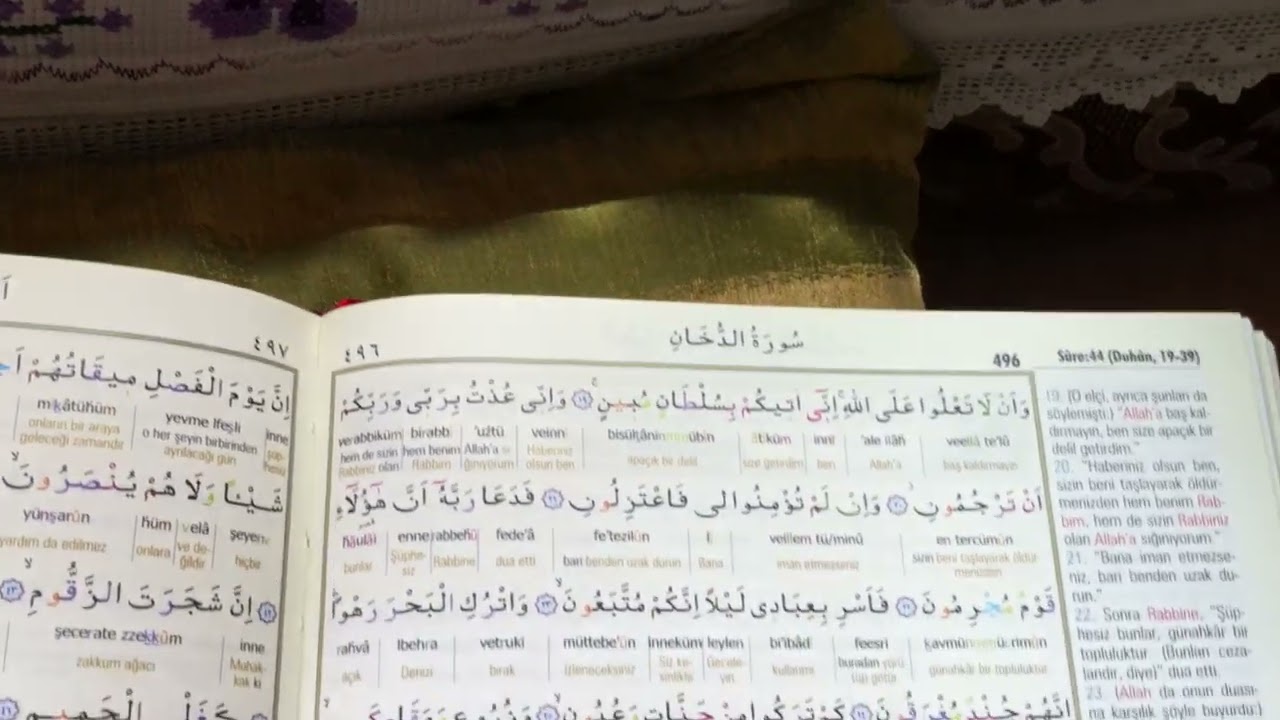 سُورَةُ الدُّخَانِ
٤٩٦
496
Sûre:44 (Duhân, 19-39)
وَاَنْ لَا تَعْلُوا عَلَى اللّٰهِ اِنّٖى اٰتٖيكُمْ بِسُلْطَانٍ مُبٖينٍ ﴿١٩﴾ وَاِنّٖى عُذْتُ بِرَبّٖى وَرَبِّكُمْ
veellâ te'lû 'ale llâhi innî âtîküm bisülţânin mübîn veinnî 'uźtü birabbî verabbiküm
başkaldırmayın Allah'a ben size getirdim apaçık bir delil Haberiniz olsun ben Allah'a sığınıyorum hem benim Rabbim hem de sizin Rabbiniz olan
اَنْ تَرْجُمُونِ ﴿٢٠﴾ وَاِنْ لَمْ تُؤْمِنُوا لٖى فَاعْتَزِلُونِ ﴿٢١﴾ فَدَعَا رَبَّهُٓ اَنَّ هٰٓؤُ۬لَٓاءِ
en tercümûn veillem tü/minû lî fe'tezilûn fede'â rabbehû enne hâulâi
sizin beni taşlayarak öldürmenizden iman etmezseniz Bana bari benden uzak durun dua etti Rabbine Şüphesiz bunlar
قَوْمٌ مُجْرِمُونَ ﴿٢٢﴾ فَاَسْرِ بِعِبَادٖى لَيْلًا اِنَّكُمْ مُتَّبَعُونَ ﴿٢٣﴾ وَاتْرُكِ الْبَحْرَ رَهْوًا
kavmün mücrimûn feesri bi'ibâdî leylen inneküm müttebe'ûn vetruki lbehra rahvâ
günahkâr bir topluluktur buradan yürü kullarımı Geceleyin Siz kesinlikle izleneceksiniz bırak Denizi açık
اِنَّهُمْ جُنْدٌ مُغْرَقُونَ ﴿٢٤﴾ كَمْ تَرَكُوا مِنْ جَنَّاتٍ وَعُيُونٍ ﴿٢٥﴾ وَزُرُوعٍ وَمَقَامٍ
19. (O elçi, ayrıca şunları da
söylemişti:) "Allah'a baş kal-
dırmayın, ben size apaçık bir
delil getirdim."
20. "Haberiniz olsun ben,
sizin beni taşlayarak öldür-
menizden hem benim Rab-
bim, hem de sizin Rabbiniz
olan Allah'a sığınıyorum."
21. "Bana iman etmezse-
niz, bari benden uzak du-
run."
22. Sonra Rabbine, "Şüp-
hesiz bunlar, günahkâr bir
topluluktur (Bunları ceza-
landır, diye)" dua etti.
23. (Allah da onun duası-
na karşılık şöyle buyurdu:)
٤٩٧
اِنَّ يَوْمَ الْفَصْلِ مٖيقَاتُهُمْ
inne yevme lfeşli mîkâtühüm
o her şeyin birbirinden ayrılacağı gün onların bir araya geleceği zamandır
شَيْئًا وَلَا هُمْ يُنْصَرُونَ
şeyen velâ hüm yünşarûn
hiçbir ve değildir onlara yardım da edilmez
اِنَّ شَجَرَتَ الزَّقُّومِ
inne şecerate zzekkûm
Muhakkak ki zakkum ağacı
كَغَلْيِ الْحَمٖيمِ